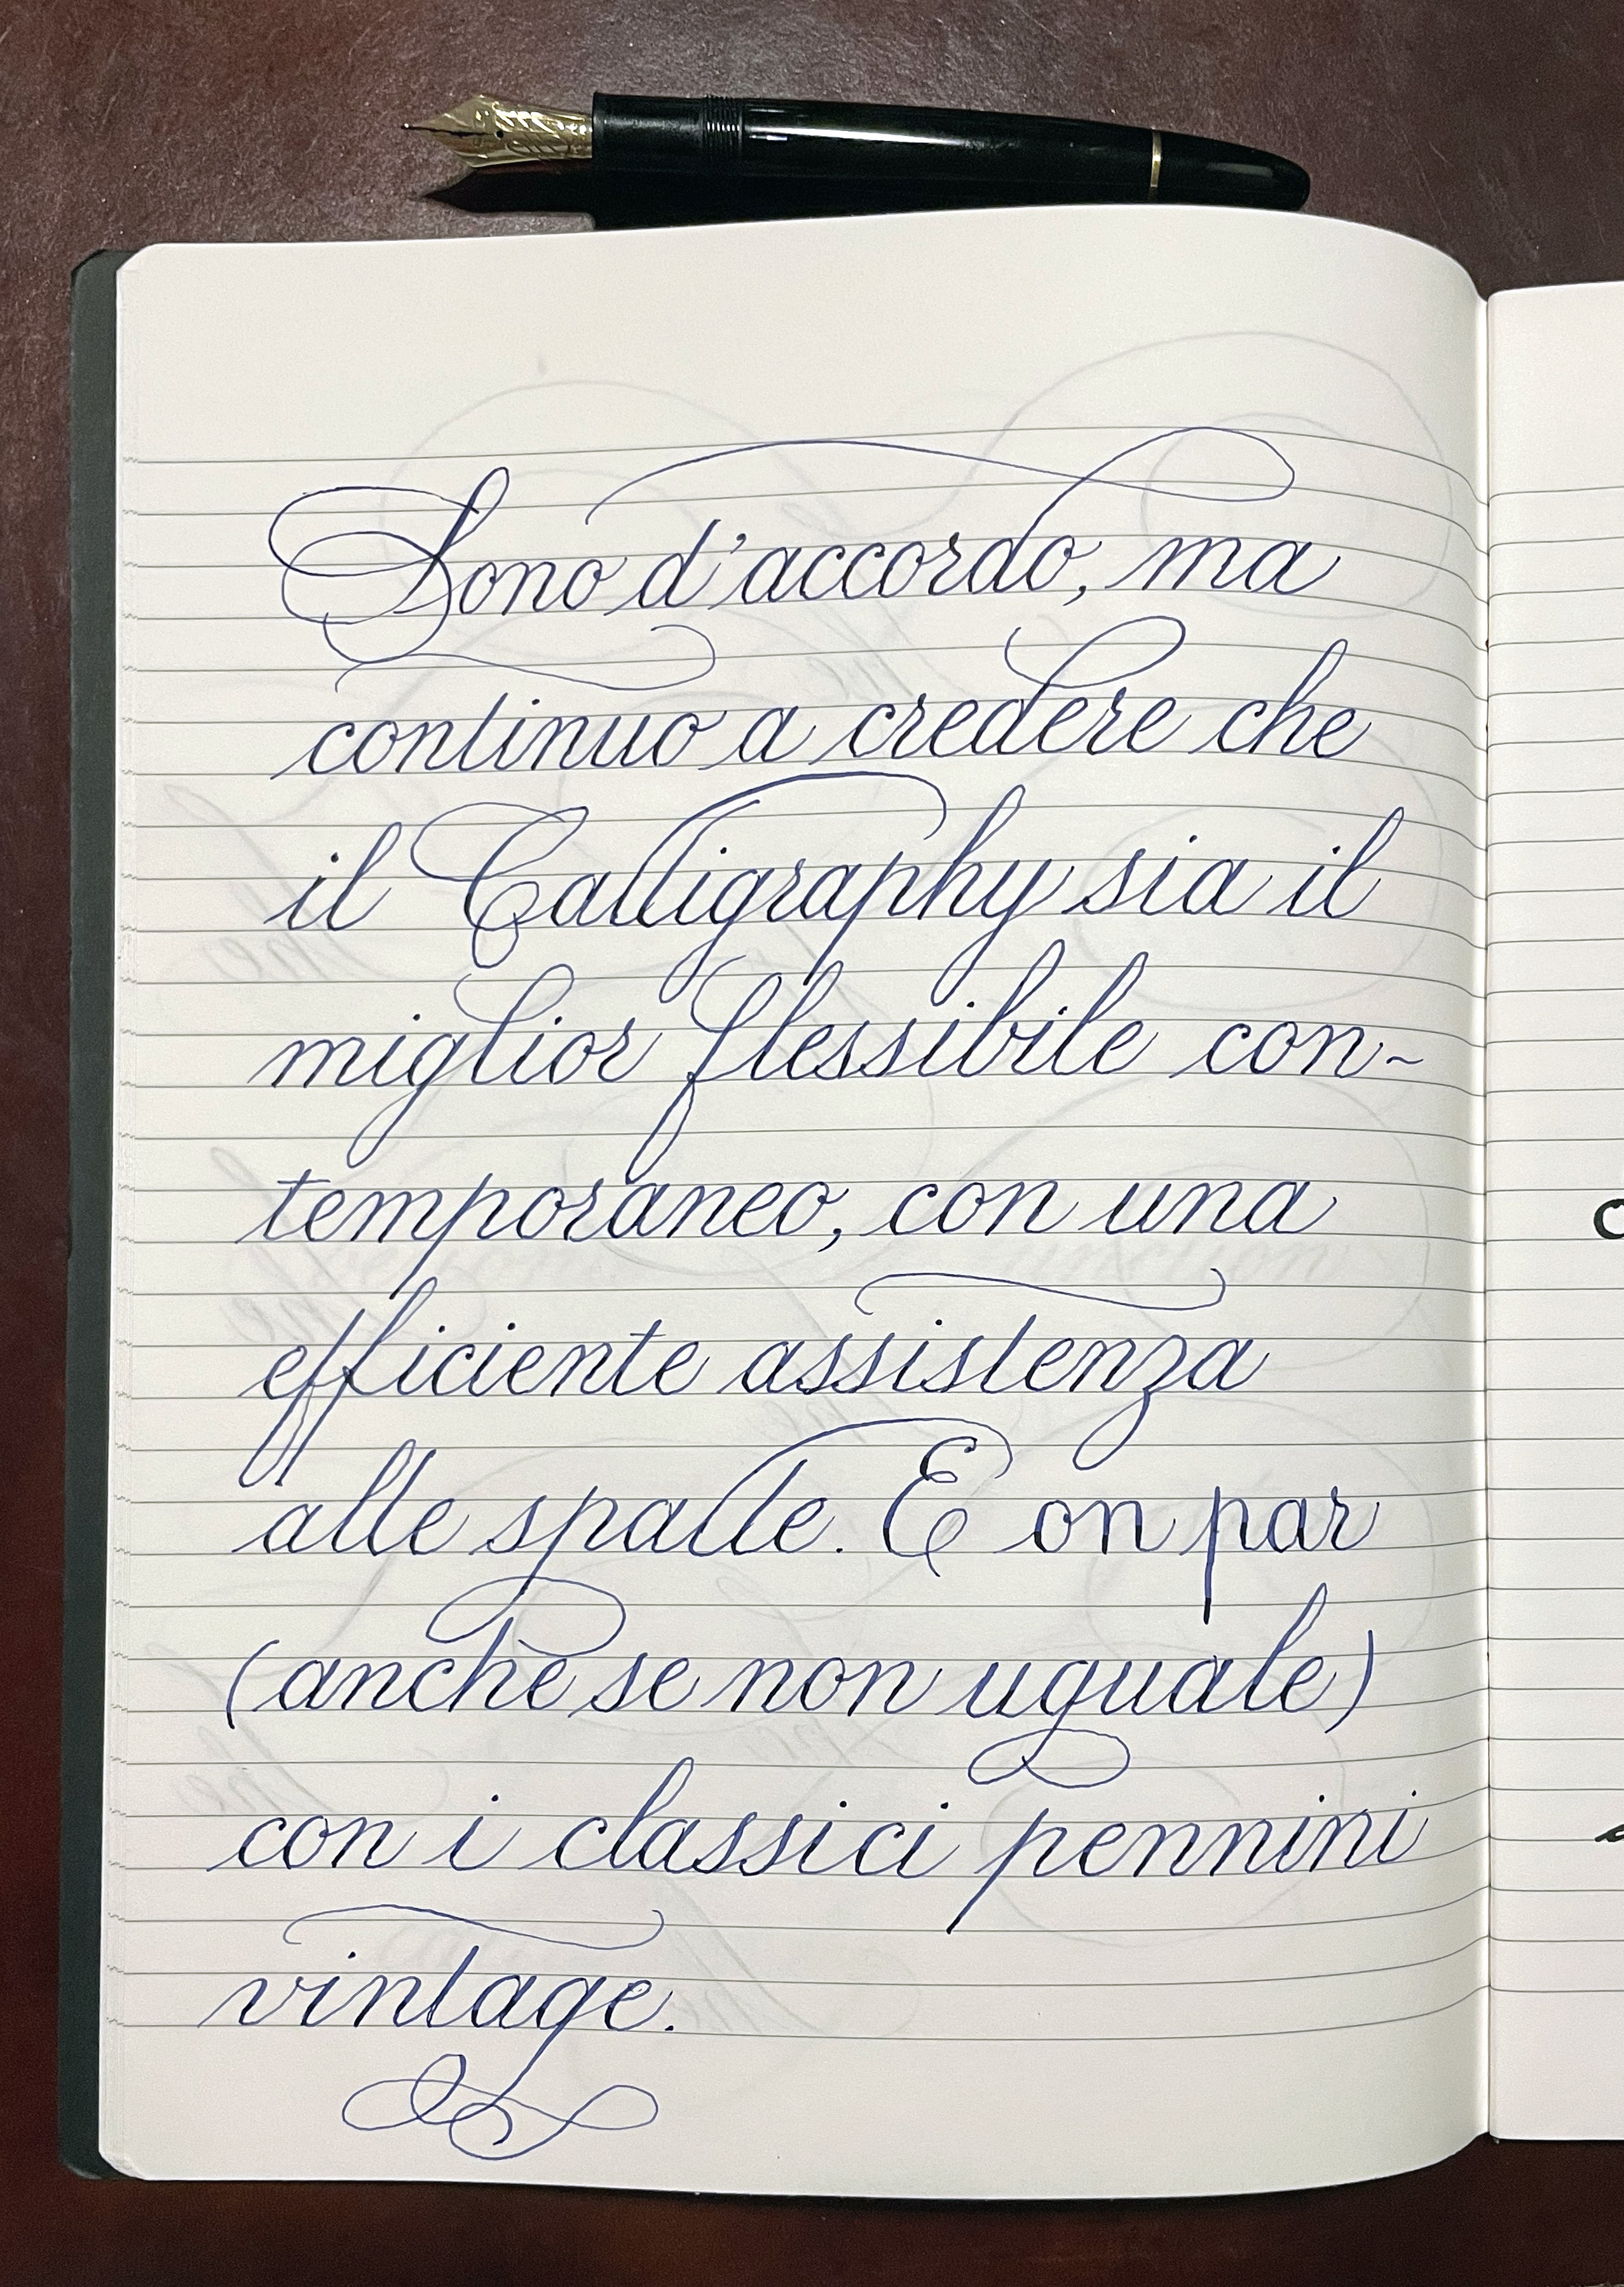 Sono d'accordo, ma
continuo a credere che
il Calligraphy sia il
miglior flessibile con-
temporaneo, con una
efficiente assistenza
alle spalle. E on par
(anche se non uguale)
con i classici pennini
vintage.